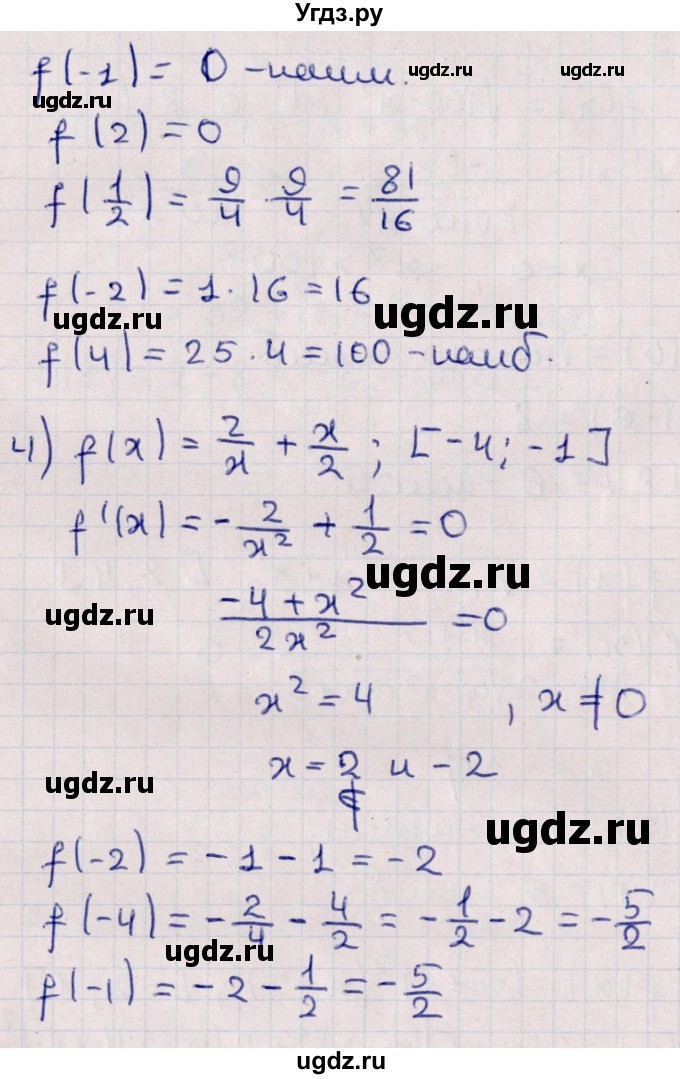 Угдз.ру
f(-1) = 0 - наим.
ugdz.ru
ugdz.ru
ugdz.ru
f(2) = 0
f(1/2) = 9/4 · 9/4 = 81/16
f(-2) = 1 · 16 = 16
ugdz.ru
ugdz.ru
f(4) = 25 · 4 = 100 - наиб.
4) f(x) = 2/x + x/2 ; [-4; -1]
f'(x) = -2/x² + 1/2 = 0
ugdz.ru
ugdz.ru
(-4 + x²)/(2x²) = 0
x² = 4 , x ≠ 0
x = 2 и -2
ugdz.ru
∉
ugdz.ru
f(-2) = -1 - 1 = -2
f(-4) = -2/4 - 4/2 = -1/2 - 2 = -5/2
ugdz.ru
f(-1) = -2 - 1/2 = -5/2
ugdz.ru